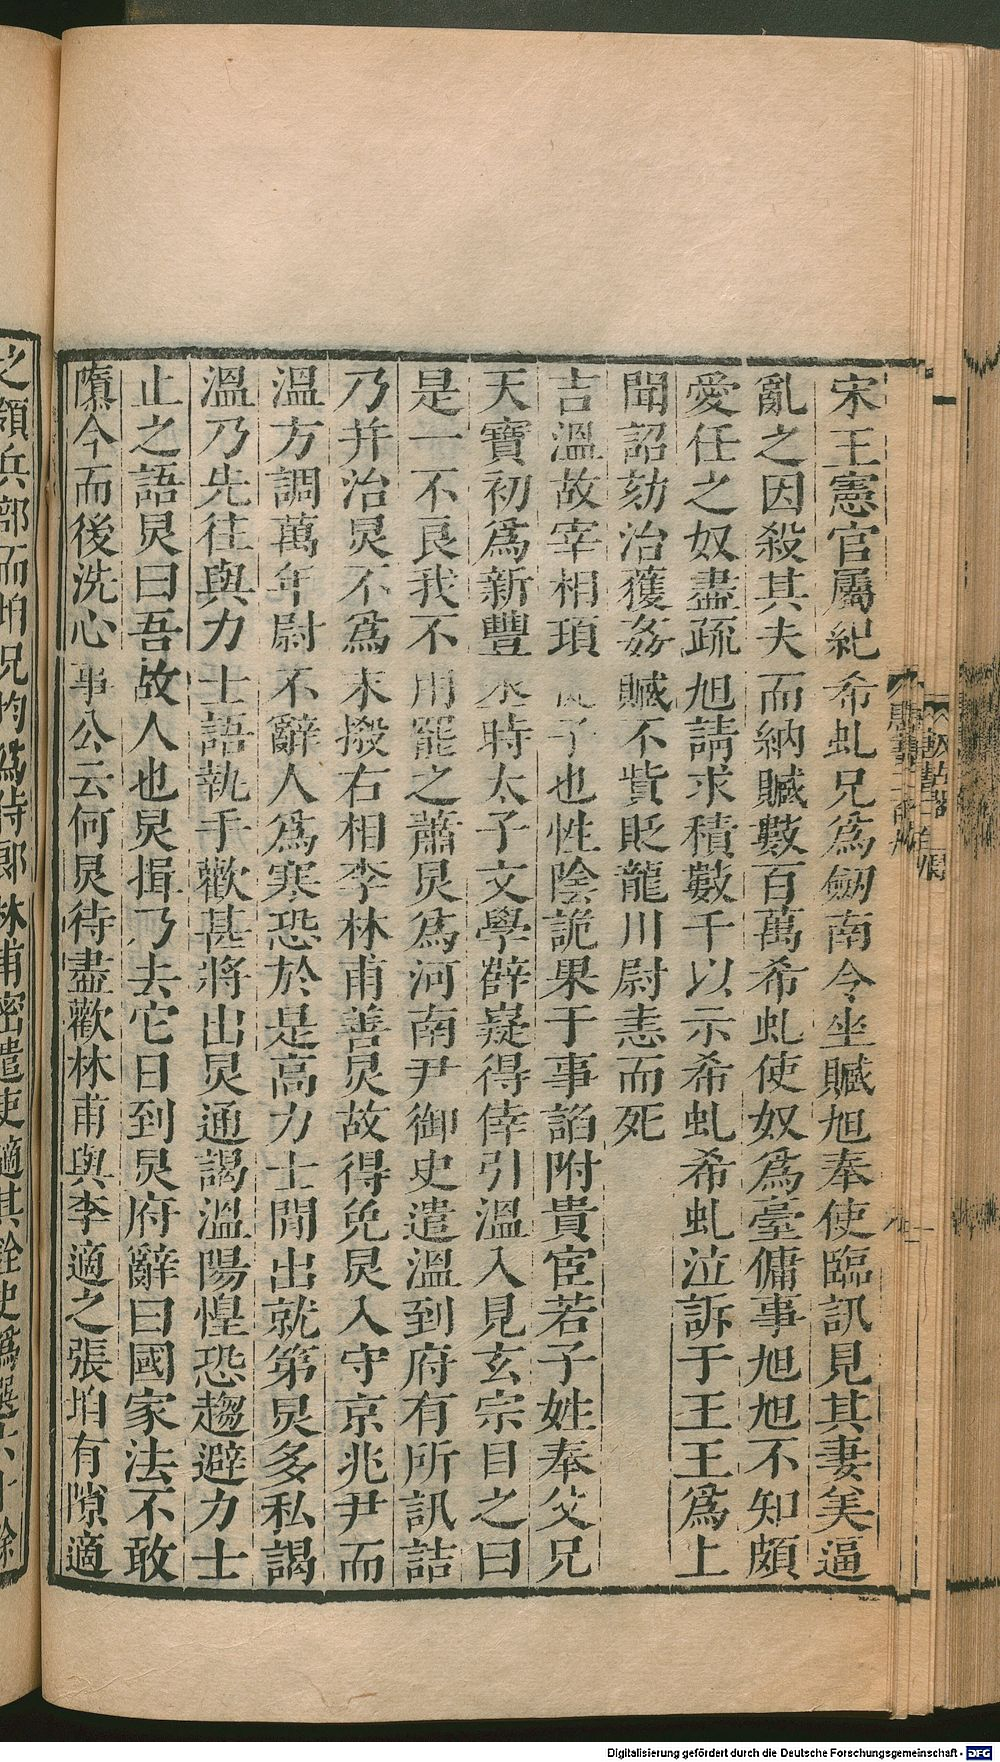 宋王憲官屬紀希虬兄爲劒南令坐贓旭奉使臨訊見其妻美逼
亂之因殺其夫而納贓數百萬希虬使奴爲臺傭事旭旭不知頗
愛任之奴盡疏旭請求積數千以示希虬希虬泣訴于王王爲上
聞詔劾治獲姦贓不貲貶龍川尉恚而死
吉溫故宰相頊從子也性陰詭果于事諂附貴宦若子姓奉父兄
天寶初爲新豐丞時太子文學薛嶷得倖引溫入見玄宗目之曰
是一不良我不用罷之蕭炅爲河南尹御史遣溫到府有所訊詰
乃并治炅不爲末搬右相李林甫善炅故得免炅入守京兆尹而
溫方調萬年尉不辭人爲寒恐於是高力士閒出就第炅多私謁
溫乃先往與力士語執手歡甚將出炅通謁溫陽惶恐趨避力士
止之語炅曰吾故人也炅揖乃去它日到炅府辭曰國家法不敢
隳今而後洗心事公云何炅待盡歡林甫與李適之張垍有隙適
之領兵部而垍兄均爲侍郎林甫密遣吏擿其銓史爲選六十餘
Digitalisierung gefördert durch die Deutsche Forschungsgemeinschaft - DFG